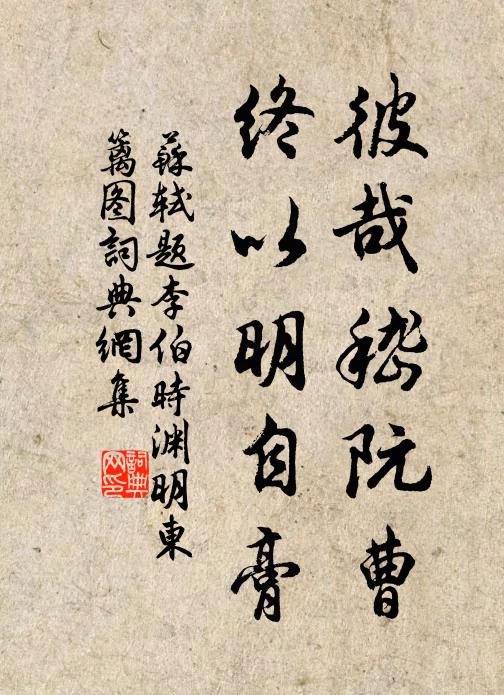 彼哉嵇阮曹
终以明自膏
蘇軾题李伯時渊明東
篱图詞典網集
詞典网印